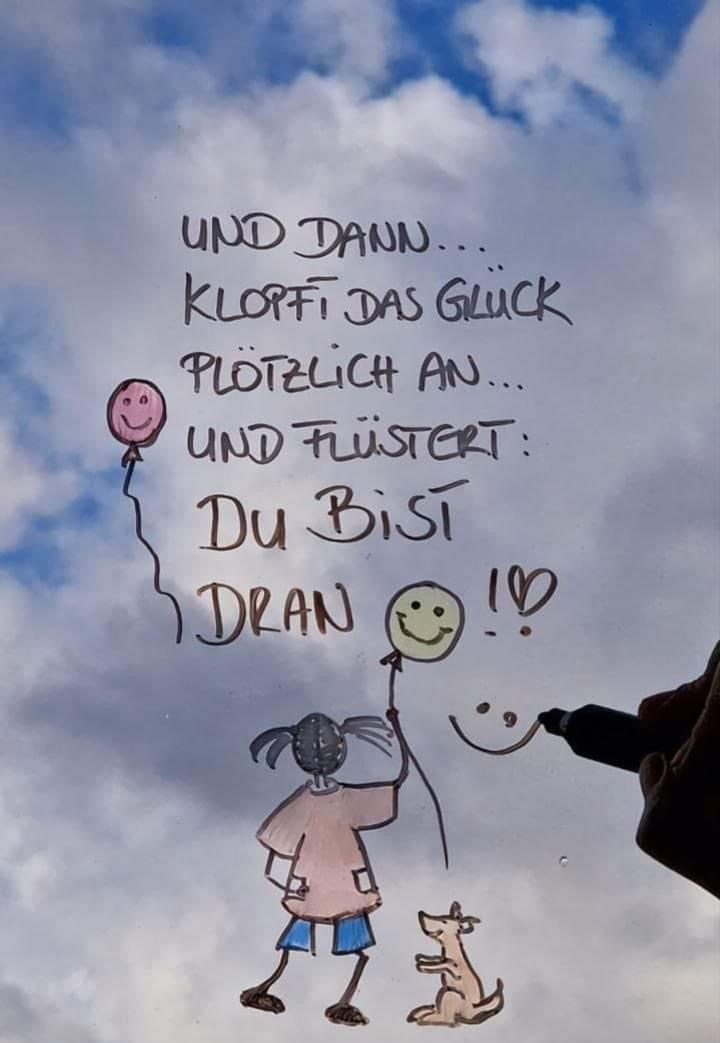 UND DANN...
KLOPFT DAS GLÜCK
PLÖTZLICH AN...
UND FLÜSTERT:
DU BIST
DRAN !♡